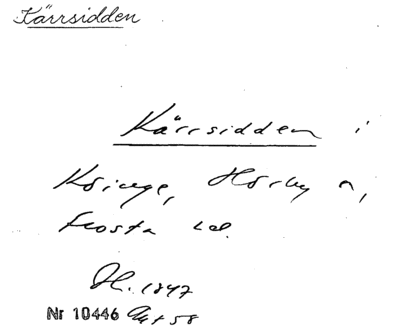 Kärrsidden
Kärrsidden i
Köinge, Hörby sn,
Frosta hd.
H. 1847
Nr 10446 58